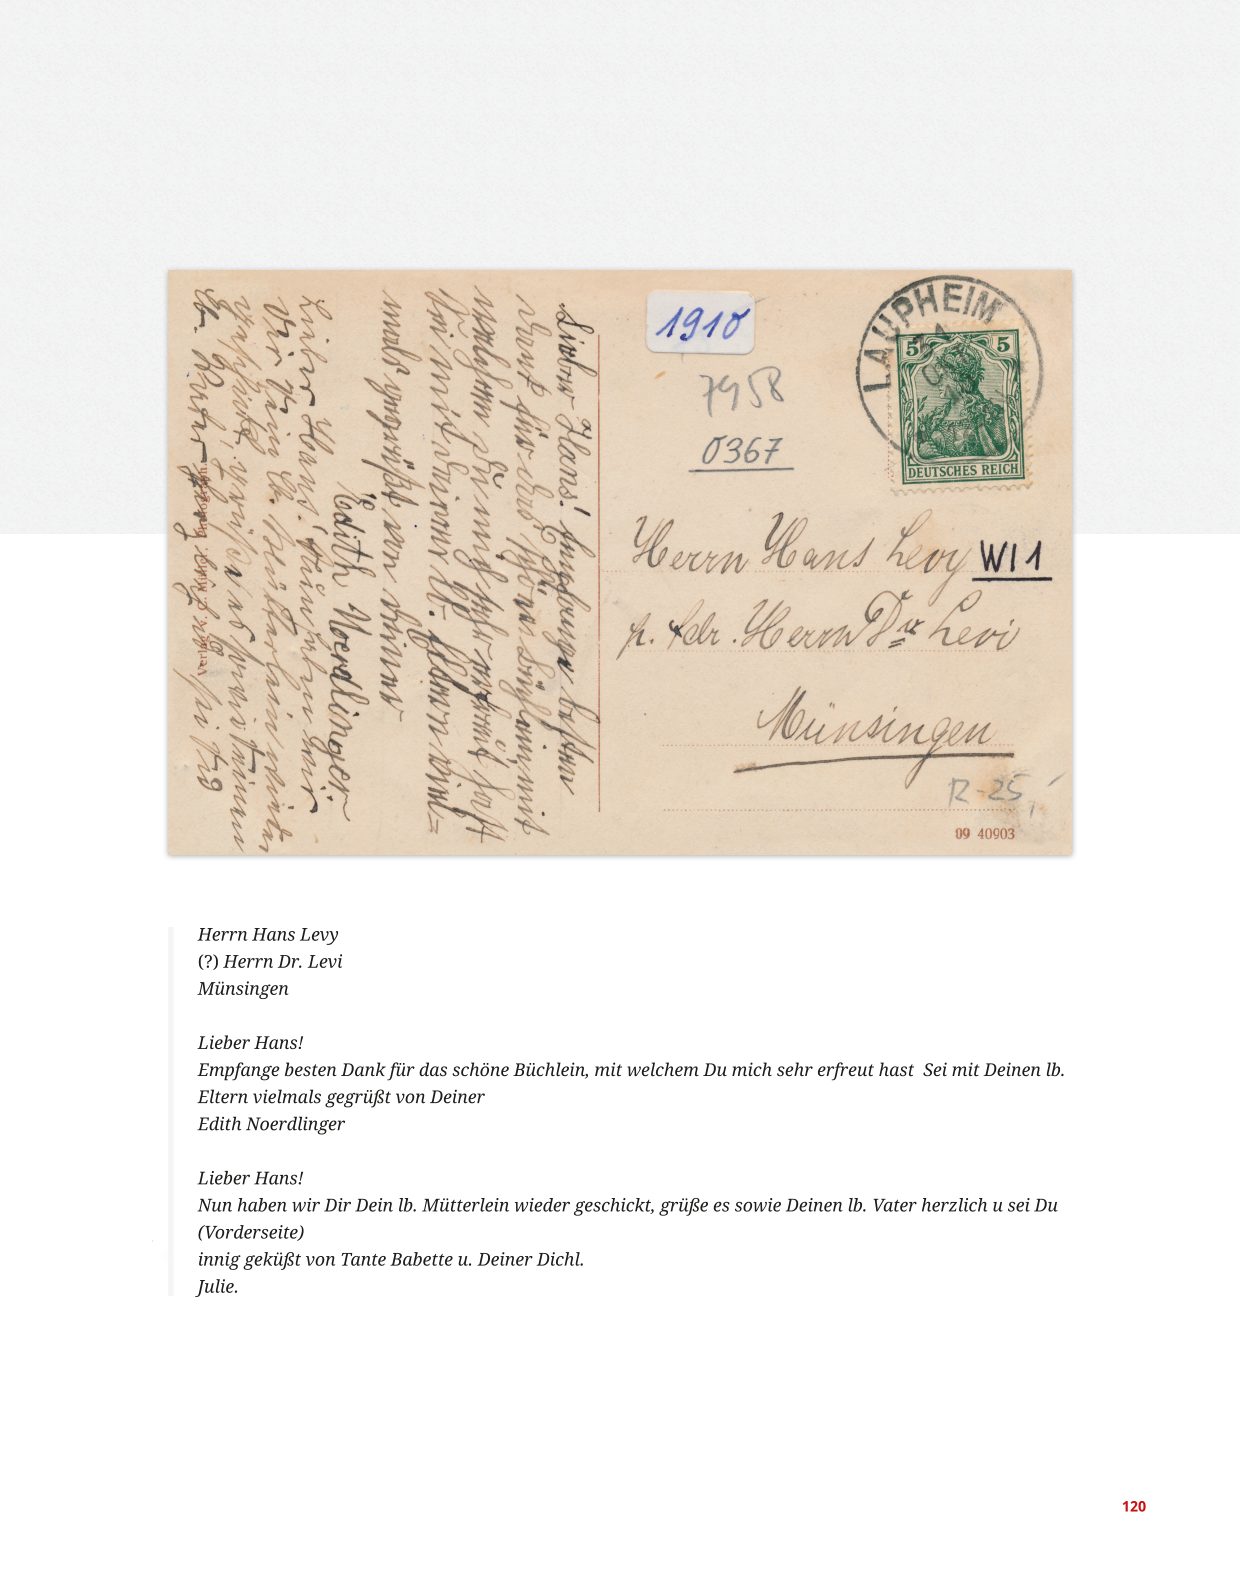 1910
7958
0367
LAUPHEIM
5 5
DEUTSCHES REICH
Herrn Hans Levy WI 1
p. Adr. Herrn Dr. Levi
Münsingen
R-25,-
09 40903
Lieber Hans! Empfange besten
Dank für das schöne Büchlein, mit
welchem Du mich sehr erfreut hast
Sei mit Deinen lb. Eltern viel=
mals gegrüßt von Deiner
Edith Noerdlinger.
Lieber Hans! Nun haben wir
Dir Dein lb. Mütterlein wieder
geschickt, grüße es sowie Deinen
lb. Vater herzlich u sei Du
Verlag v.
Herrn Hans Levy
(?) Herrn Dr. Levi
Münsingen
Lieber Hans!
Empfange besten Dank für das schöne Büchlein, mit welchem Du mich sehr erfreut hast  Sei mit Deinen lb.
Eltern vielmals gegrüßt von Deiner
Edith Noerdlinger
Lieber Hans!
Nun haben wir Dir Dein lb. Mütterlein wieder geschickt, grüße es sowie Deinen lb. Vater herzlich u sei Du
(Vorderseite)
innig geküßt von Tante Babette u. Deiner Dichl.
Julie.
120